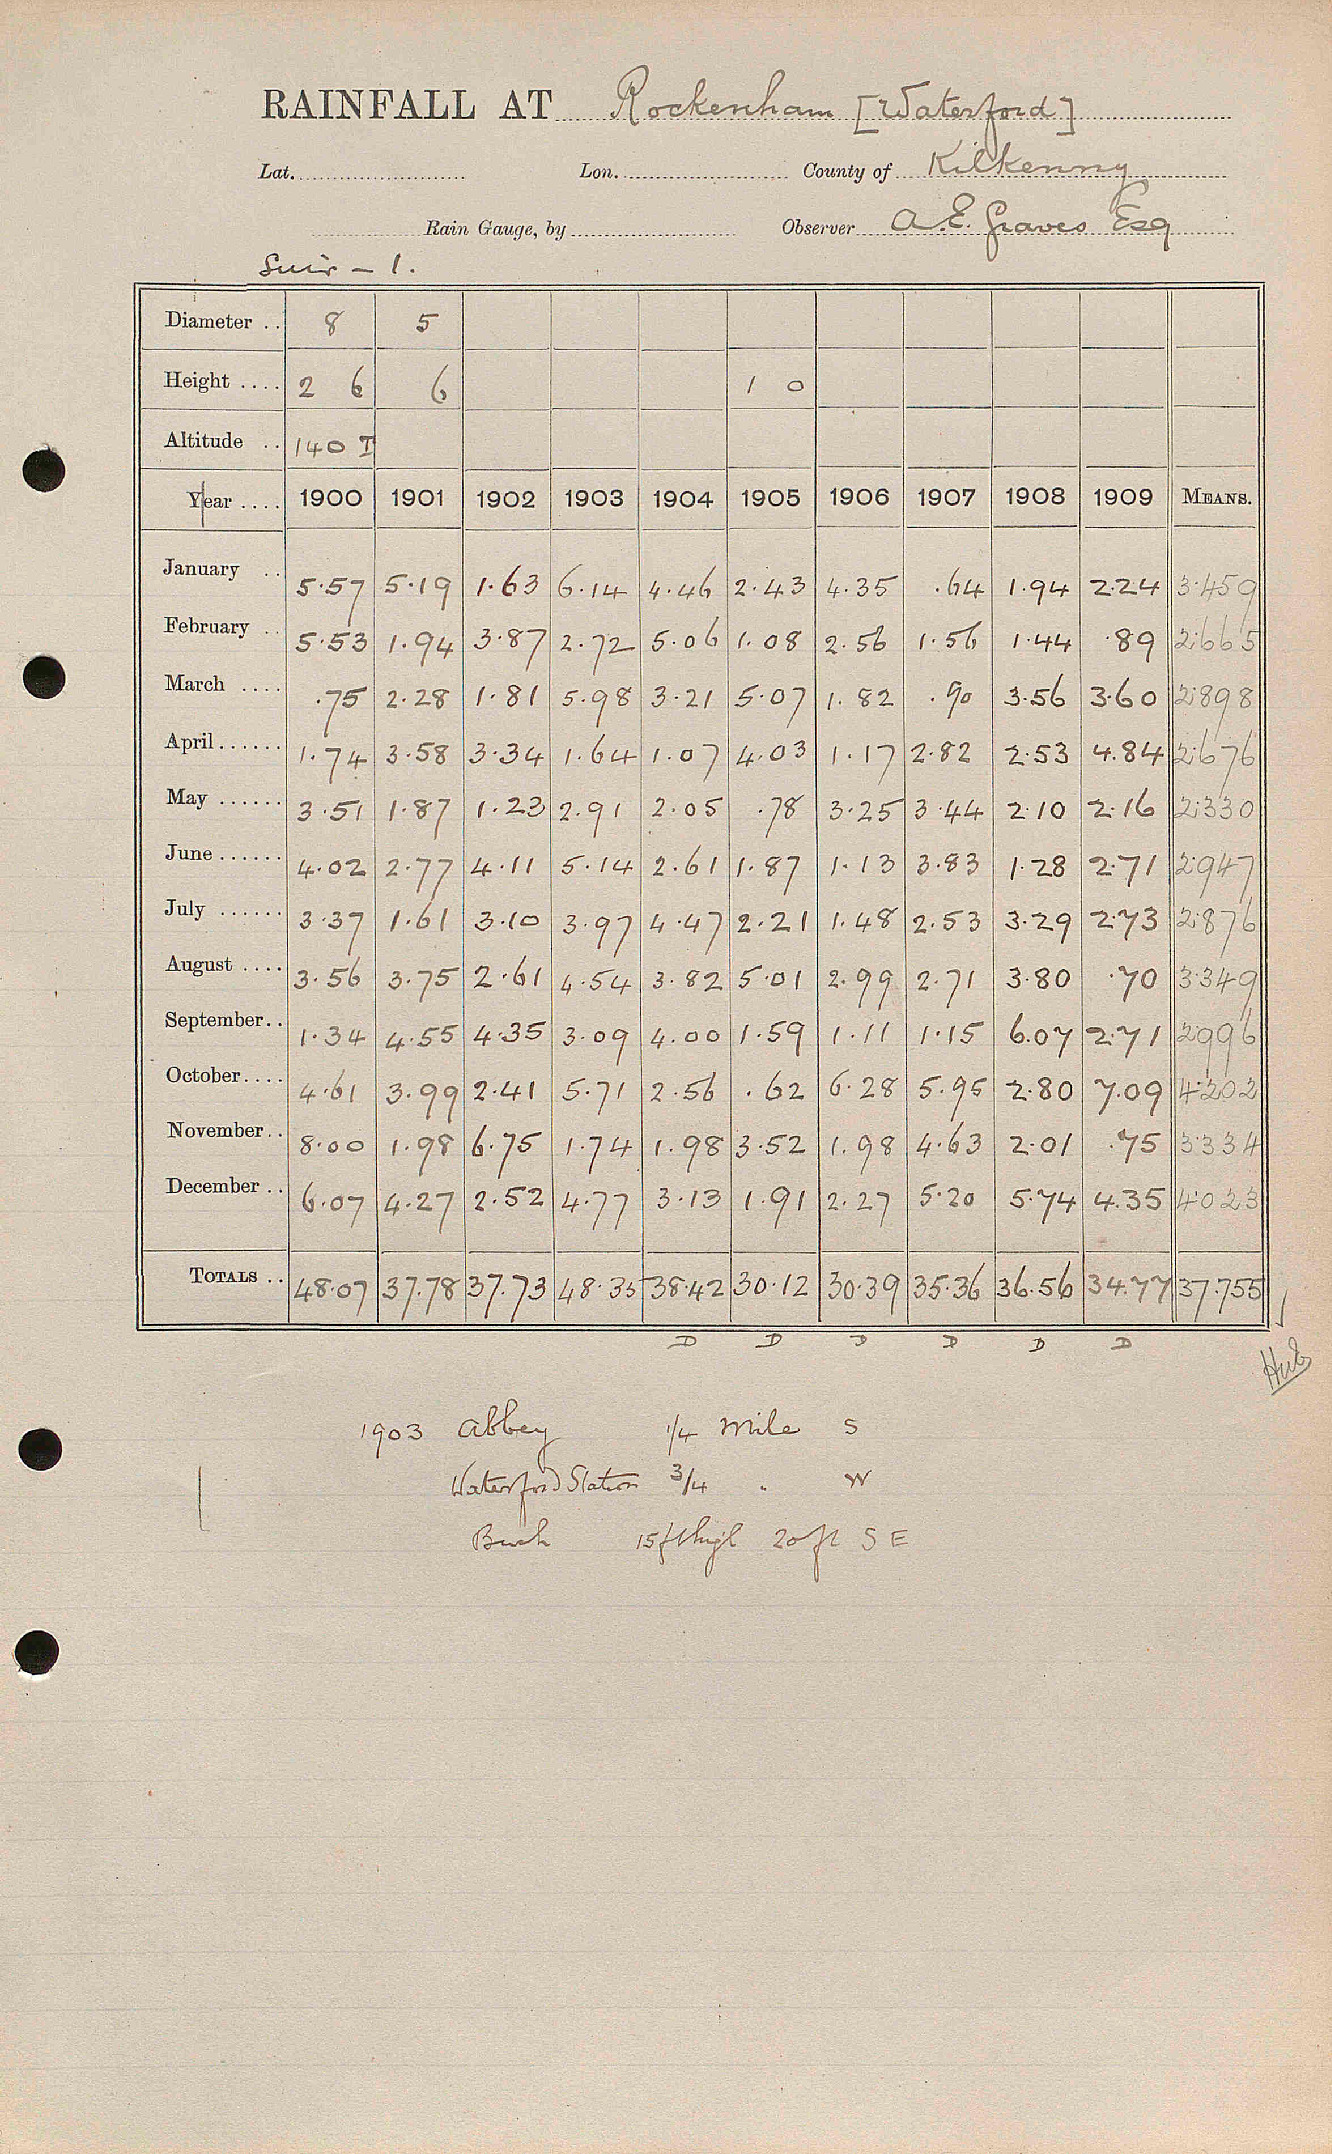 RAINFALL AT Rockenham [Waterford]
Lat. Lon. County of Kilkenny
Rain Gauge, by Observer A.E. Graves Esq
Suir - 1.
Diameter .. 8 5
Height .... 2 6 6 1 0
Altitude .. 140 T
Year .... 1900 1901 1902 1903 1904 1905 1906 1907 1908 1909 MEANS.
January .. 5.57 5.19 1.63 6.14 4.46 2.43 4.35 .64 1.94 2.24 3.459
February .. 5.53 1.94 3.87 2.72 5.06 1.08 2.56 1.56 1.44 .89 2.665
March .... .75 2.28 1.81 5.98 3.21 5.07 1.82 .90 3.56 3.60 2.898
April...... 1.74 3.58 3.34 1.64 1.07 4.03 1.17 2.82 2.53 4.84 2.676
May ...... 3.51 1.87 1.23 2.91 2.05 .78 3.25 3.44 2.10 2.16 2.330
June...... 4.02 2.77 4.11 5.14 2.61 1.87 1.13 3.83 1.28 2.71 2.947
July ...... 3.37 1.61 3.10 3.97 4.47 2.21 1.48 2.53 3.29 2.73 2.876
August .... 3.56 3.75 2.61 4.54 3.82 5.01 2.99 2.71 3.80 .70 3.349
September.. 1.34 4.55 4.35 3.09 4.00 1.59 1.11 1.15 6.07 2.71 2.996
October.... 4.61 3.99 2.41 5.71 2.56 .62 6.28 5.95 2.80 7.09 4.202
November.. 8.00 1.98 6.75 1.74 1.98 3.52 1.98 4.63 2.01 .75 3.334
December .. 6.07 4.27 2.52 4.77 3.13 1.91 2.27 5.20 5.74 4.35 4.023
TOTALS .. 48.07 37.78 37.73 48.35 38.42 30.12 30.39 35.36 36.56 34.77 37.755
D D D D D D
1903 Abbey 1/4 mile S
Waterford Station 3/4 " W
Bush 15ft high 20 ft S E